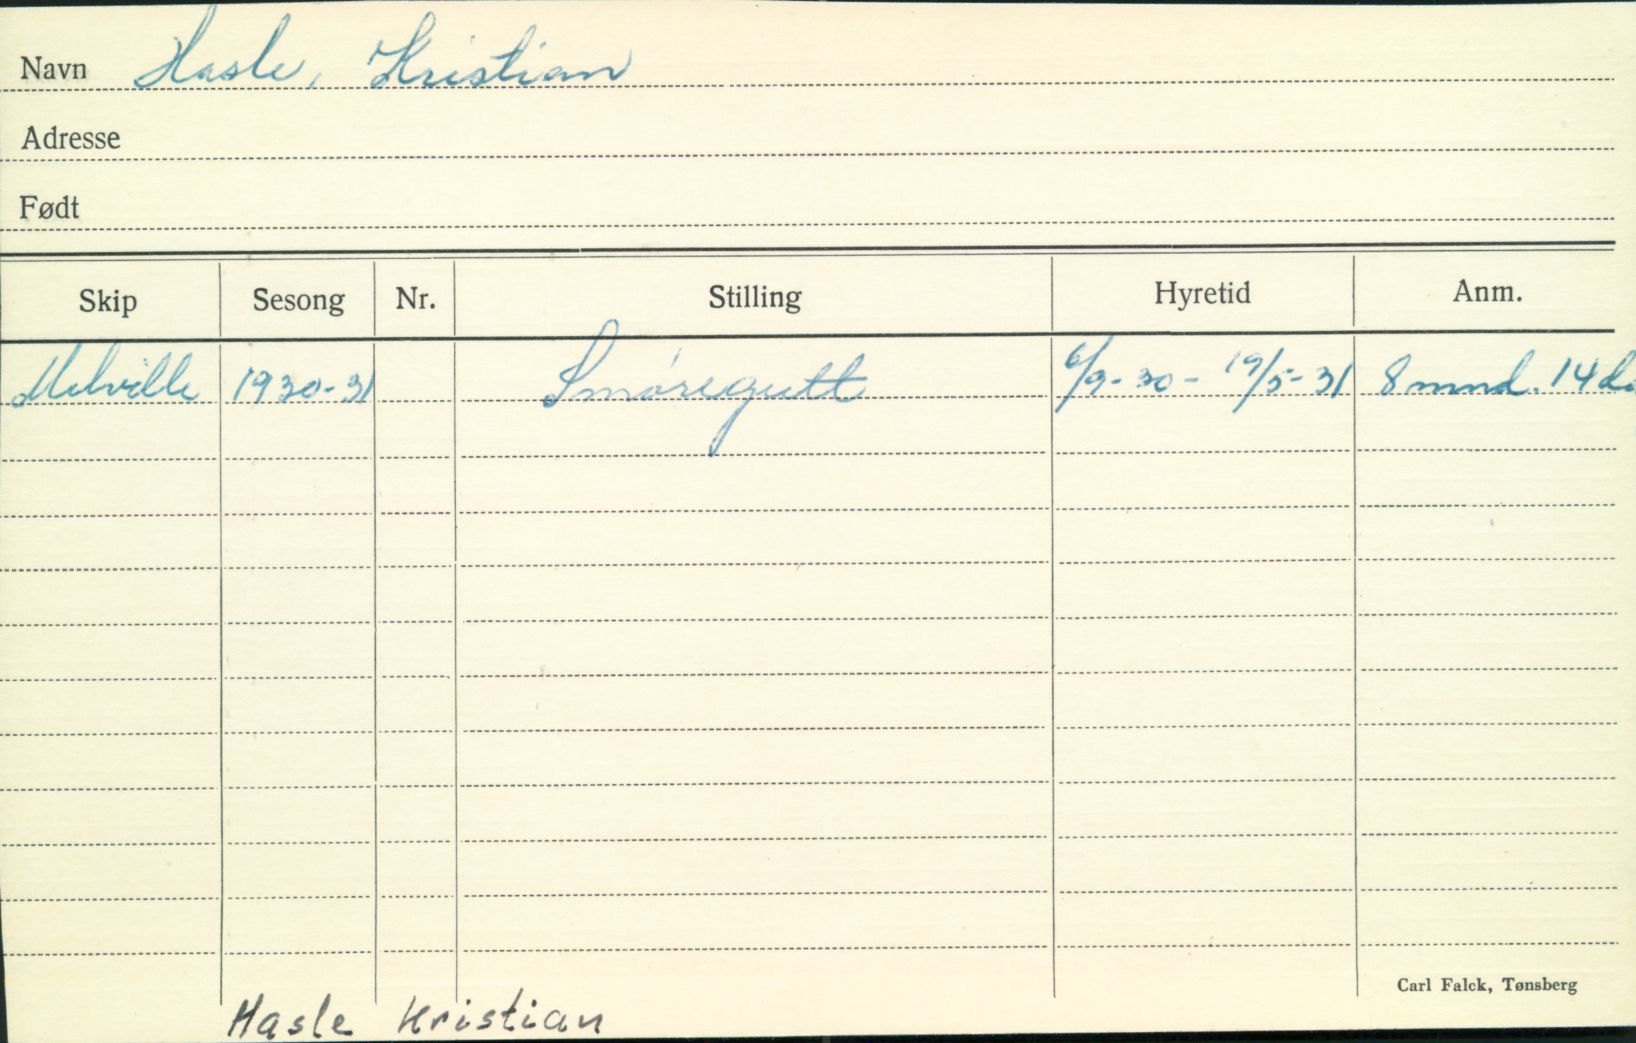 Navn Hasle, Kristian
Adresse
Født
Skip Sesong Nr. Stilling Hyretid Anm.
Melville 1930-31 Smøregutt 6/9-30 - 19/5-31 8 mnd. 14 da
Carl Falck, Tønsberg
Hasle Kristian